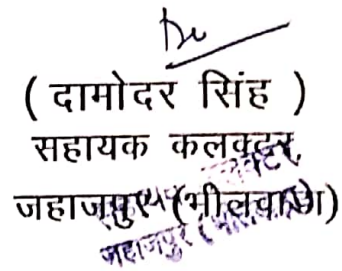 ( दामोदर सिंह )
सहायक कलक्टर,
जहाजपुर (भीलवाड़ा)